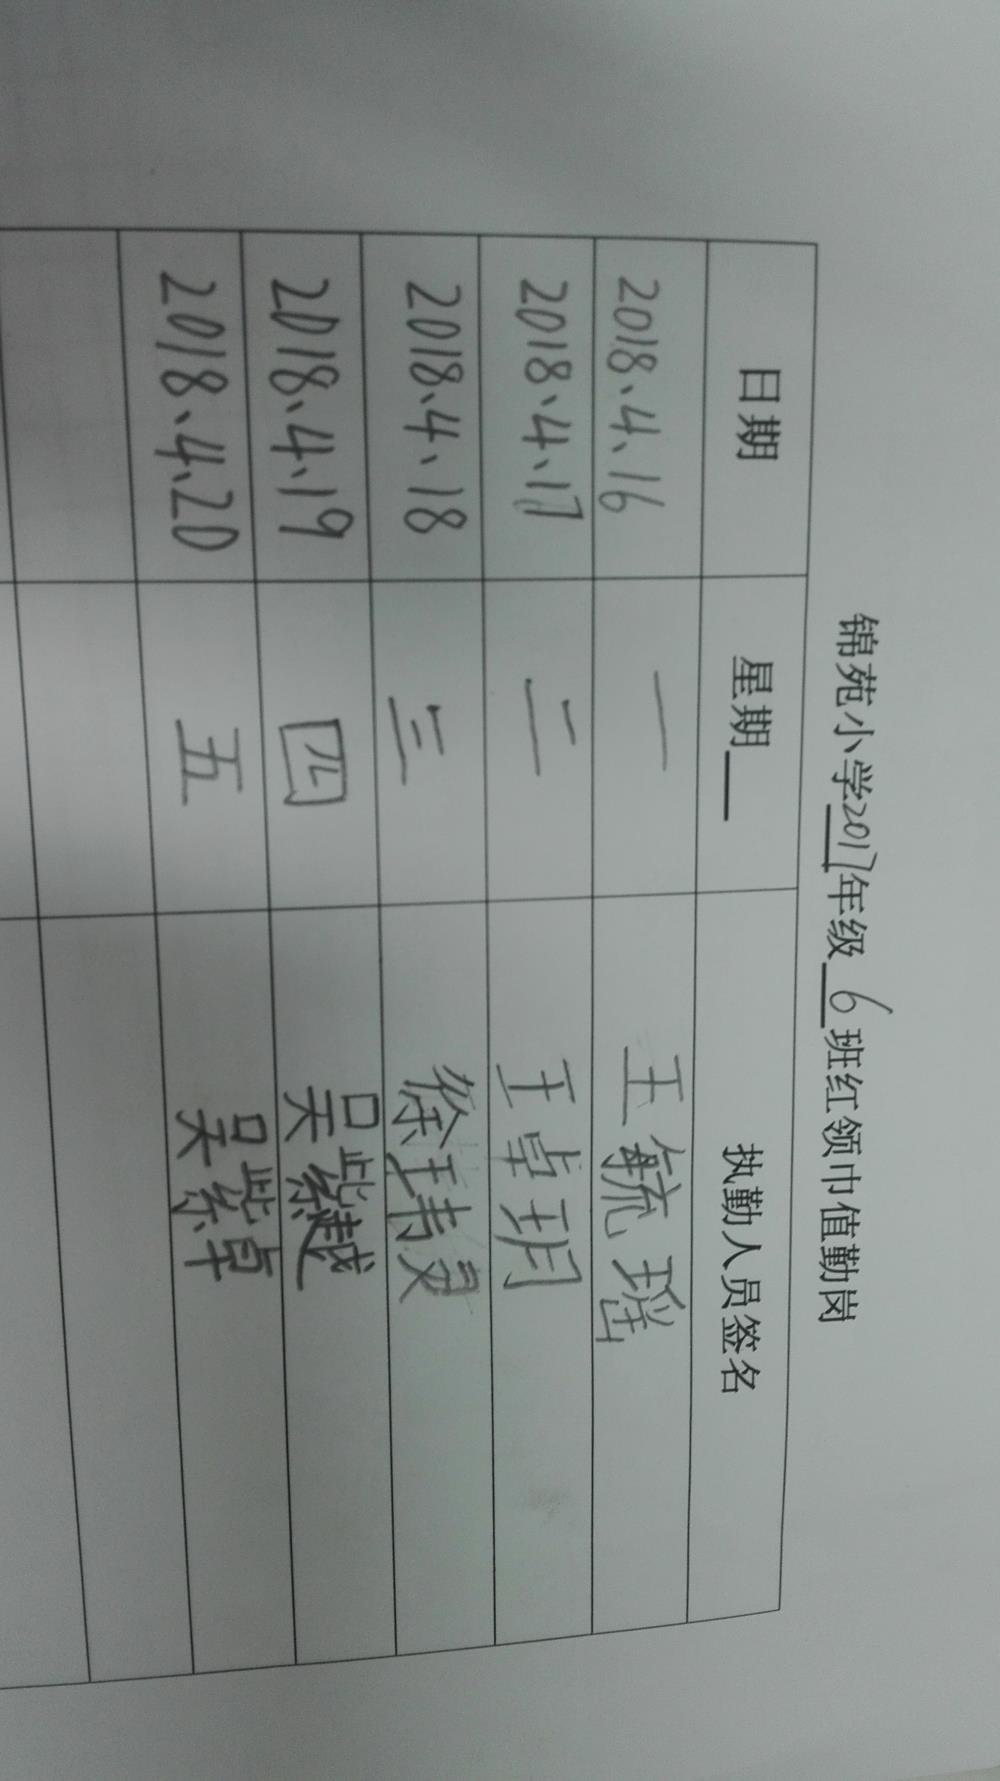 锦苑小学2017年级 6 班红领巾值勤岗
日期 星期 执勤人员签名
2018.4.16 一 王毓瑶
2018.4.17 二 王卓玥
2018.4.18 三 徐玮灵
2018.4.19 四 吴紫越
2018.4.20 五 吴紫卓